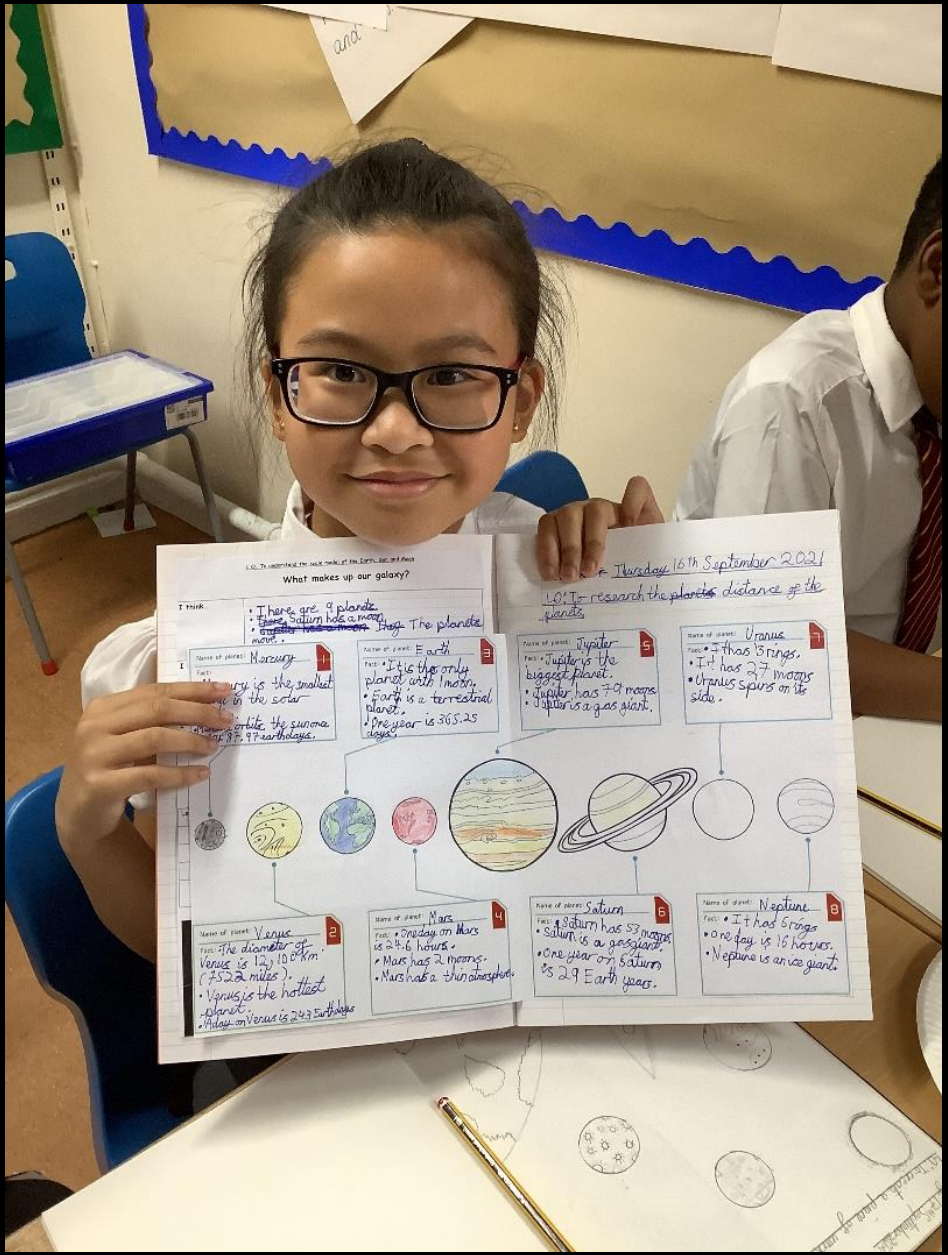 and
L.O. To understand the scale model of the Earth, Sun and Moon
What makes up our galaxy?
I think..
• There are 9 planets
there, Saturn has a moon
• Jupiter has a moon The planets
move.
Thursday 16th September 2021
LO: To research the planets distance of the
planets.
I
Name of planet: Mercury
1
Fact:
ury is the smallest
in the solar
orbits the sun once
87.97 earth days.
Name of planet: Earth
3
Fact: • It is the only
planet with 1 moon.
• Earth is a terrestrial
planet.
• One year is 365.25
days.
Name of planet: Jupiter
5
Fact: • Jupiter is the
biggest planet.
• Jupiter has 79 moons
• Jupiter is a gas giant.
Name of planet: Uranus
7
Fact: • It has 13 rings.
• It has 27 moons
• Uranus spins on its
side.
Name of planet: Venus
2
Fact: • The diameter of
Venus is 12,100 km
(7522 miles).
• Venus is the hottest
planet.
• A day on Venus is 243 Earth days
Name of planet: Mars
4
Fact: • One day on Mars
is 24.6 hours.
• Mars has 2 moons.
• Mars has a thin atmosphere.
Name of planet: Saturn
6
Fact: • Saturn has 53 moons
• Saturn is a gas giant.
• One year on Saturn
is 29 Earth years.
Name of planet: Neptune
8
Fact: • It has 6 rings
• One day is 16 hours.
• Neptune is an ice giant.